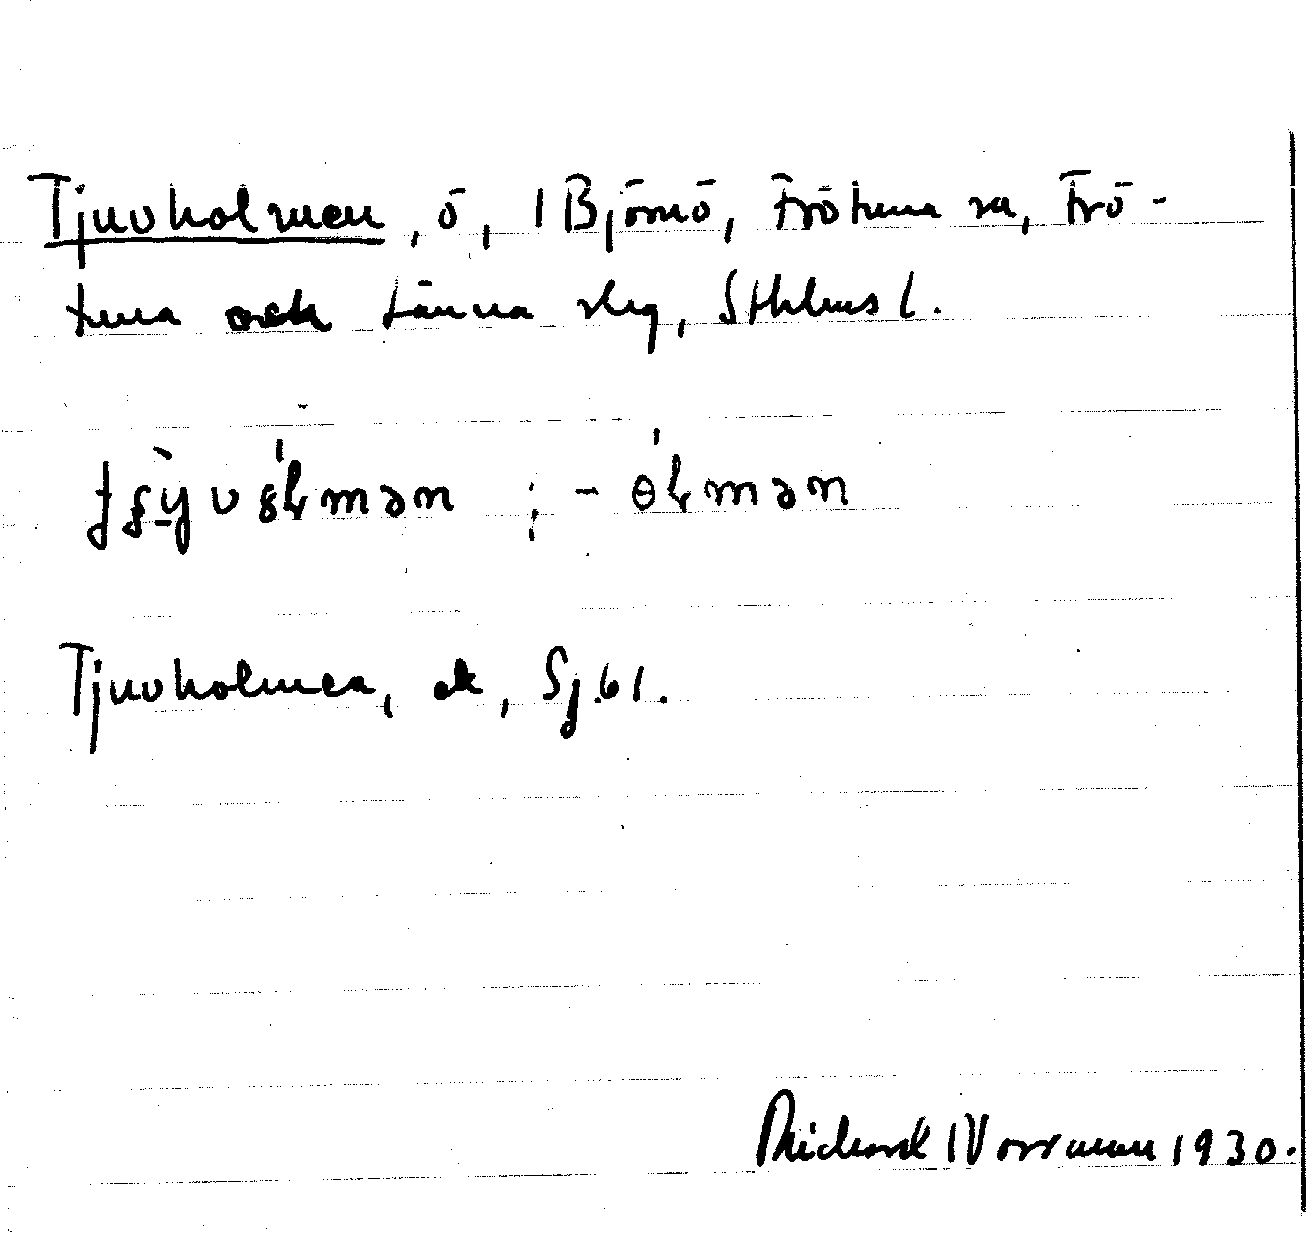 Tjuvholmen, ö, 1 Björnö, Frötuna sn, Frö-
tuna och Länna slg, Sthlms l.
Tjuvholmen, ek, Sj. 61.
Richard Norrman 1930.